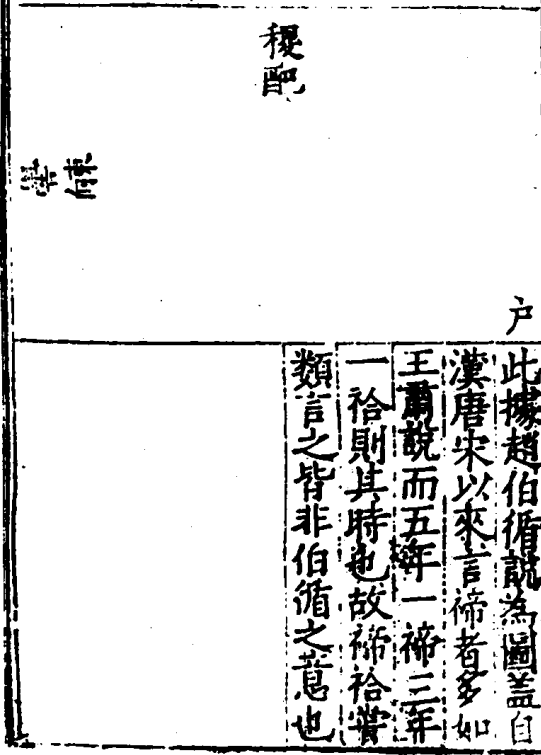 户
稷配
此據趙伯循說為圖盖自
漢唐宋以來言禘者多如
王肅說而五年一禘三年
一祫則其時也故禘祫甞
類言之皆非伯循之意也